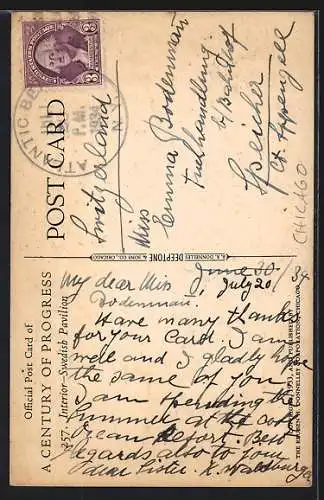 POST CARD
Official Post Card of
A CENTURY OF PROGRESS
257. Interior—Swedish Pavilion
3
ATLANTIC BE
N.Y.
P.M.
1934
Miss
Emma Bodenmann
Tuchhandlung
b/Bahnhof
Speicher
Ct. Appenzell
Switzerland
CHICAGO
R. R. DONNELLEY DEEPTONE & SONS CO., CHICAGO
June 30/34
July 20.
My dear Miss
Bodenmann.
Have many thanks
for your Card. I am
well and I gladly hope
the same of you
I am spending the
Summer at the cool
Ocean Resort. Best
Regards also to your
dear Sister. K. Waldburger
COPYRIGHT 1933 AND PUBLISHED BY
THE REUBEN H. DONNELLEY CORPORATION, CHICAGO